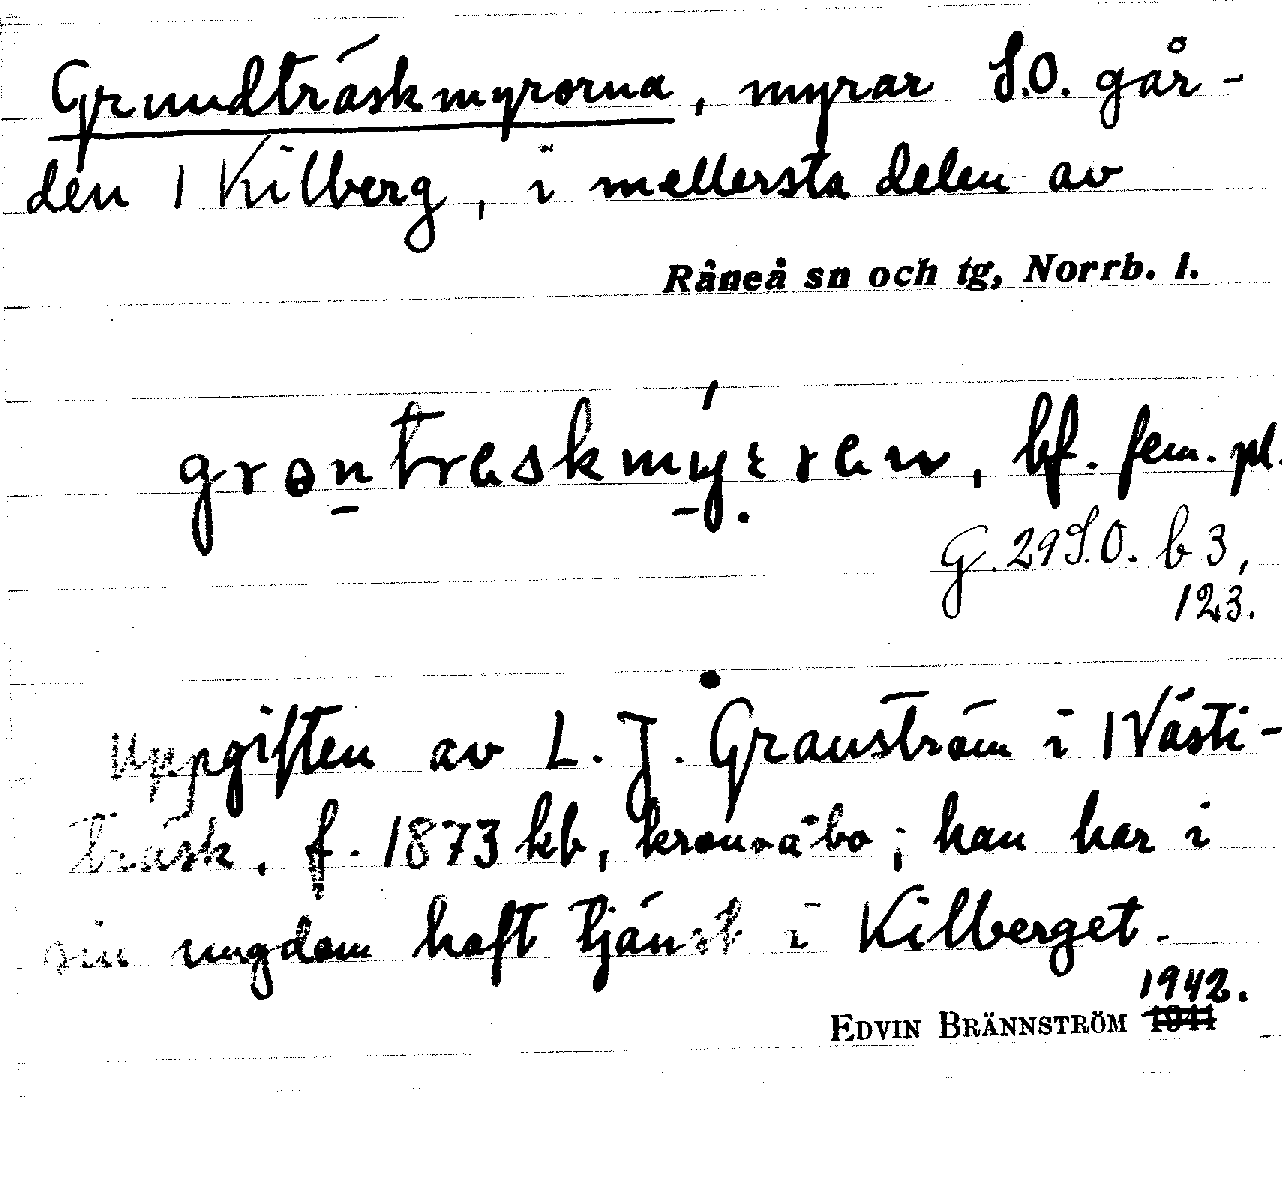 Grundträskmyrorna, myrar S.O. går-
den 1 Kilberg, i mellersta delen av
Råneå sn och tg, Norrb. l.
bf. fem. pl.
G. 29 S.O. b 3,
123.
Uppgiften av L. J. Granström i 1 Västi-
träsk, f. 1873 kb, han har i
sin ungdom haft tjänst i Kilberget.
1942.
EDVIN BRÄNNSTRÖM 1941